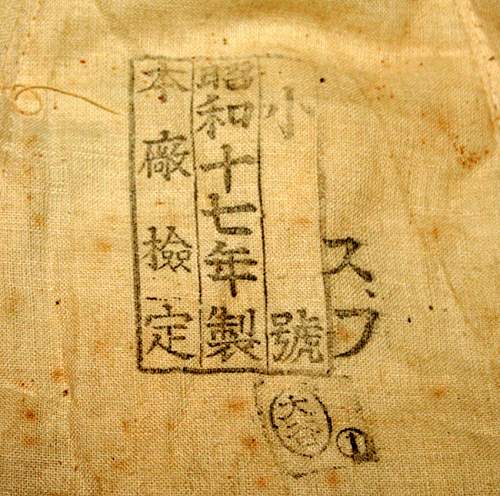 ス、フ
小號
昭和十七年製
本廠檢定
大
①